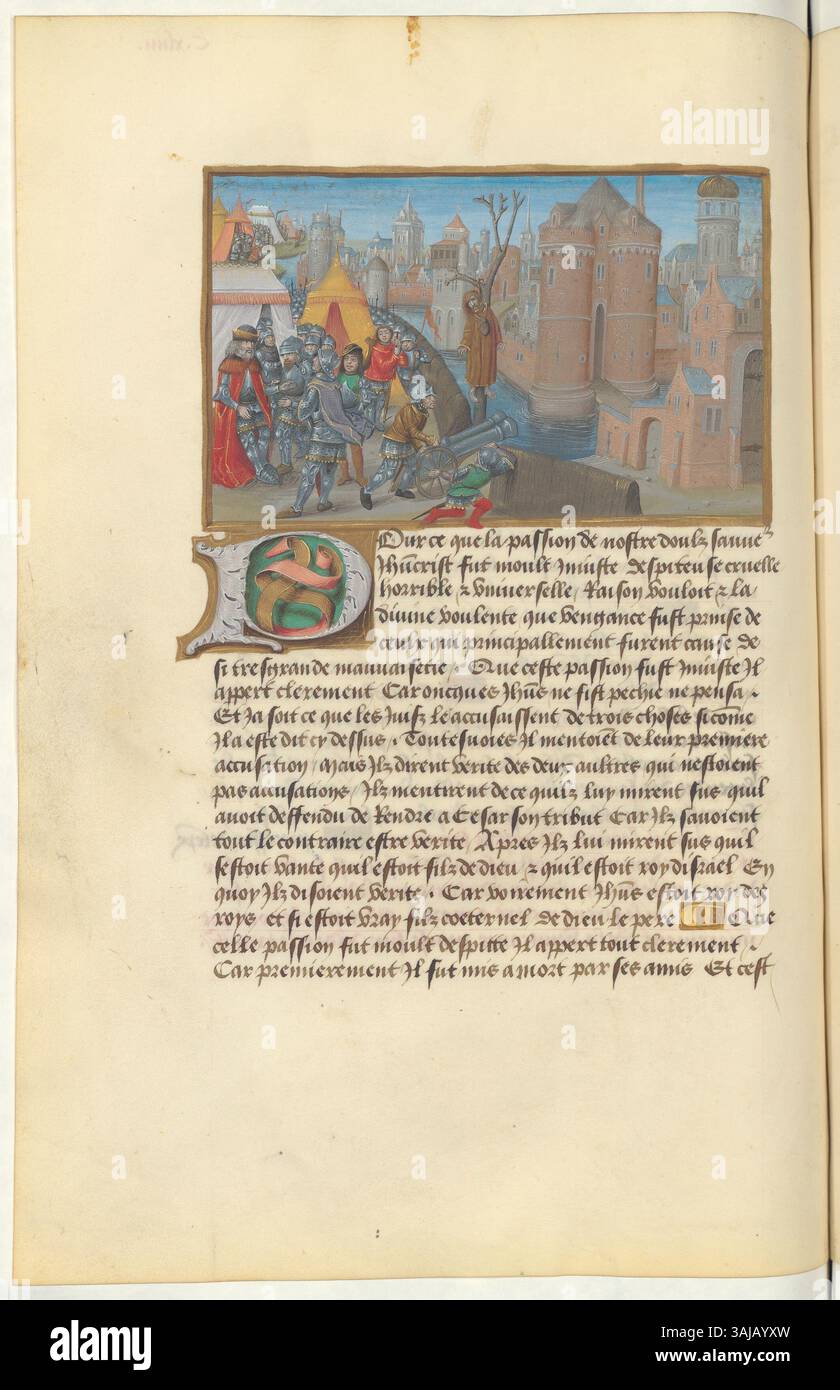 C.xiiii.
alamy
Pour ce que la passion de nostre doulz sauueᵘʳ
Jhūcrist fut moult Iniuste despiteuse cruelle
horrible & vniuerselle / Raison vouloit & la
diuine voulente que vengance fust prinse de
ceulx qui principallement furent cause de
si tresgrande mauuaistie . Que ceste passion fust Iniuste Il
appert clerement Car oncques Jhūs ne fist pechie ne pensa .
Et Ja soit ce que les Juifz le accusaissent de trois choses si cōme
Il a este dit cy dessus . Touteuoies Il mentoiēt de leur premiere
accusation / Mais Ilz dirent verite des deux aultres qui nestoient
pas accusations / Ilz mentirent de ce quilz luy mirent sus quil
auoit deffendu de Rendre a Cesar son tribut Car Ilz sauoient
tout le contraire estre verite / Apres Ilz lui mirent sus quil
sestoit vante quil estoit filz de dieu / & quil estoit roy disrael En
quoy Ilz disoient verite . Car voirement Jhūs estoit roy des
roys et si estoit vray filz coeternel de dieu le pere Que
celle passion fut moult despitte Il appert tout clerement .
Car premierement Il fut mis a mort par ses amis Et cest
alamy
Image ID: 3AJAYXW
www.alamy.com